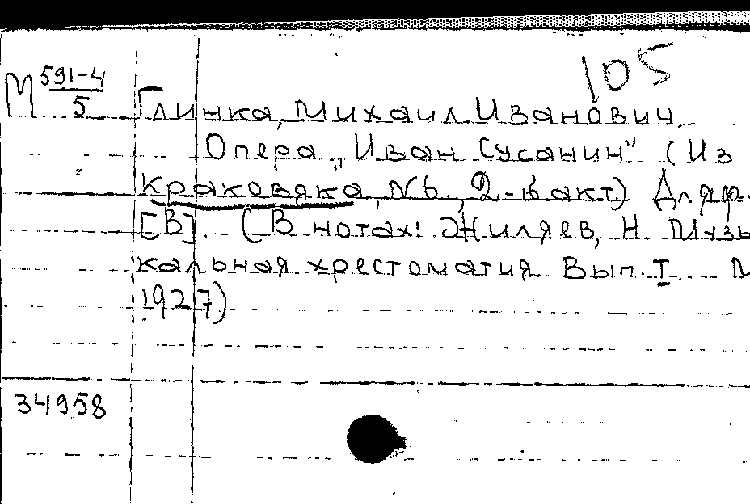 105
М 591-4
5
Глинка, Михаил Иванович.
Опера „Иван Сусанин" (Из
Краковяка, №6, 2-й акт) Для ф.
[В]. (В нотах: Жиляев, Н. Музы
кальная хрестоматия Вып. I М
1927)
34958